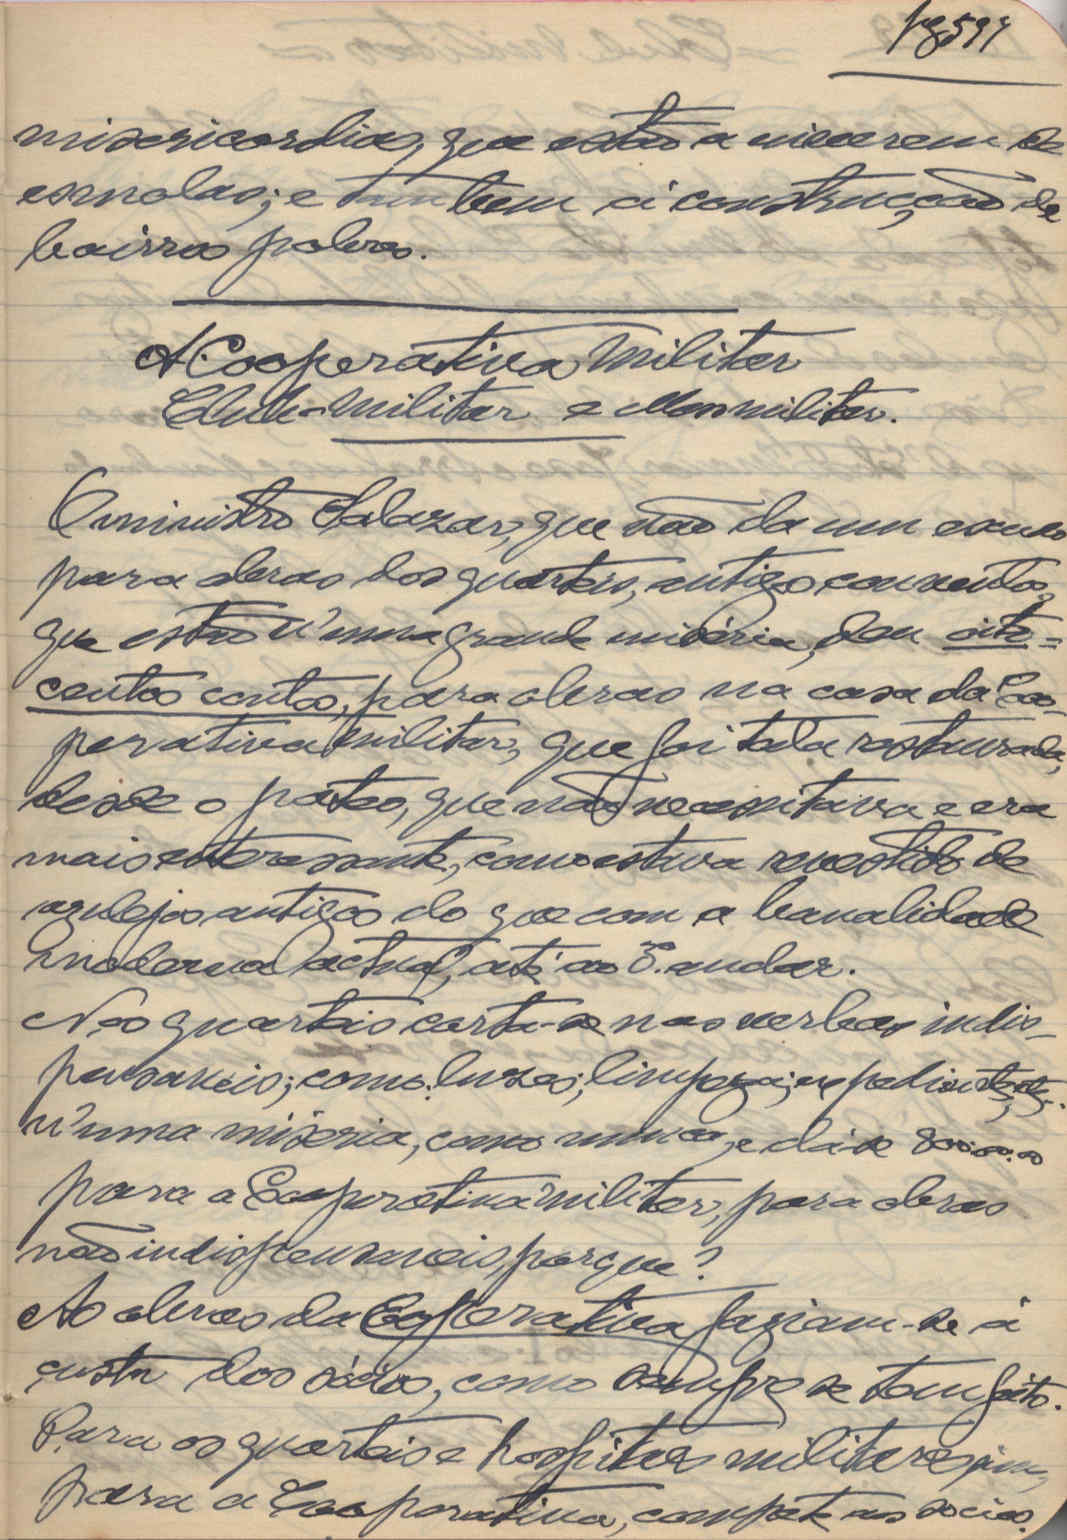 pg 597
misericordias, que estão a viverem de
esmolas; e tambem á construcção de
bairros pobres.
A Cooperativa Militar
Club-Militar e Manmilitar.
O ministro Salazar, que não da um escudo
para obras dos quarteis, antigos conventos,
que estão n'uma grande miséria, deu oito=
centos contos, para obras na casa da Coo-
perativa Militar, que foi toda restaurada,
desde o pateo, que não necessitava e era
mais enteressante, como estava revestido de
azulejos antigos do que com a banalidade
moderna actual, até ao 5.º andar.
Nos quarteis corta-se nas verbas indis-
pensaveis; como: luzes; limpeza; expediente, etc.
n'uma miseria, como nunca, e dá-se 800:00.00
para a Cooperativa Militar, para obras
não indispensaveis, porque?
As obras da Cooperativa faziam-se á
custa dos sócios, como sempre se tem feito.
Para os quarteis e hospitaes militares sim,
para a Cooperativa, compete aos socios